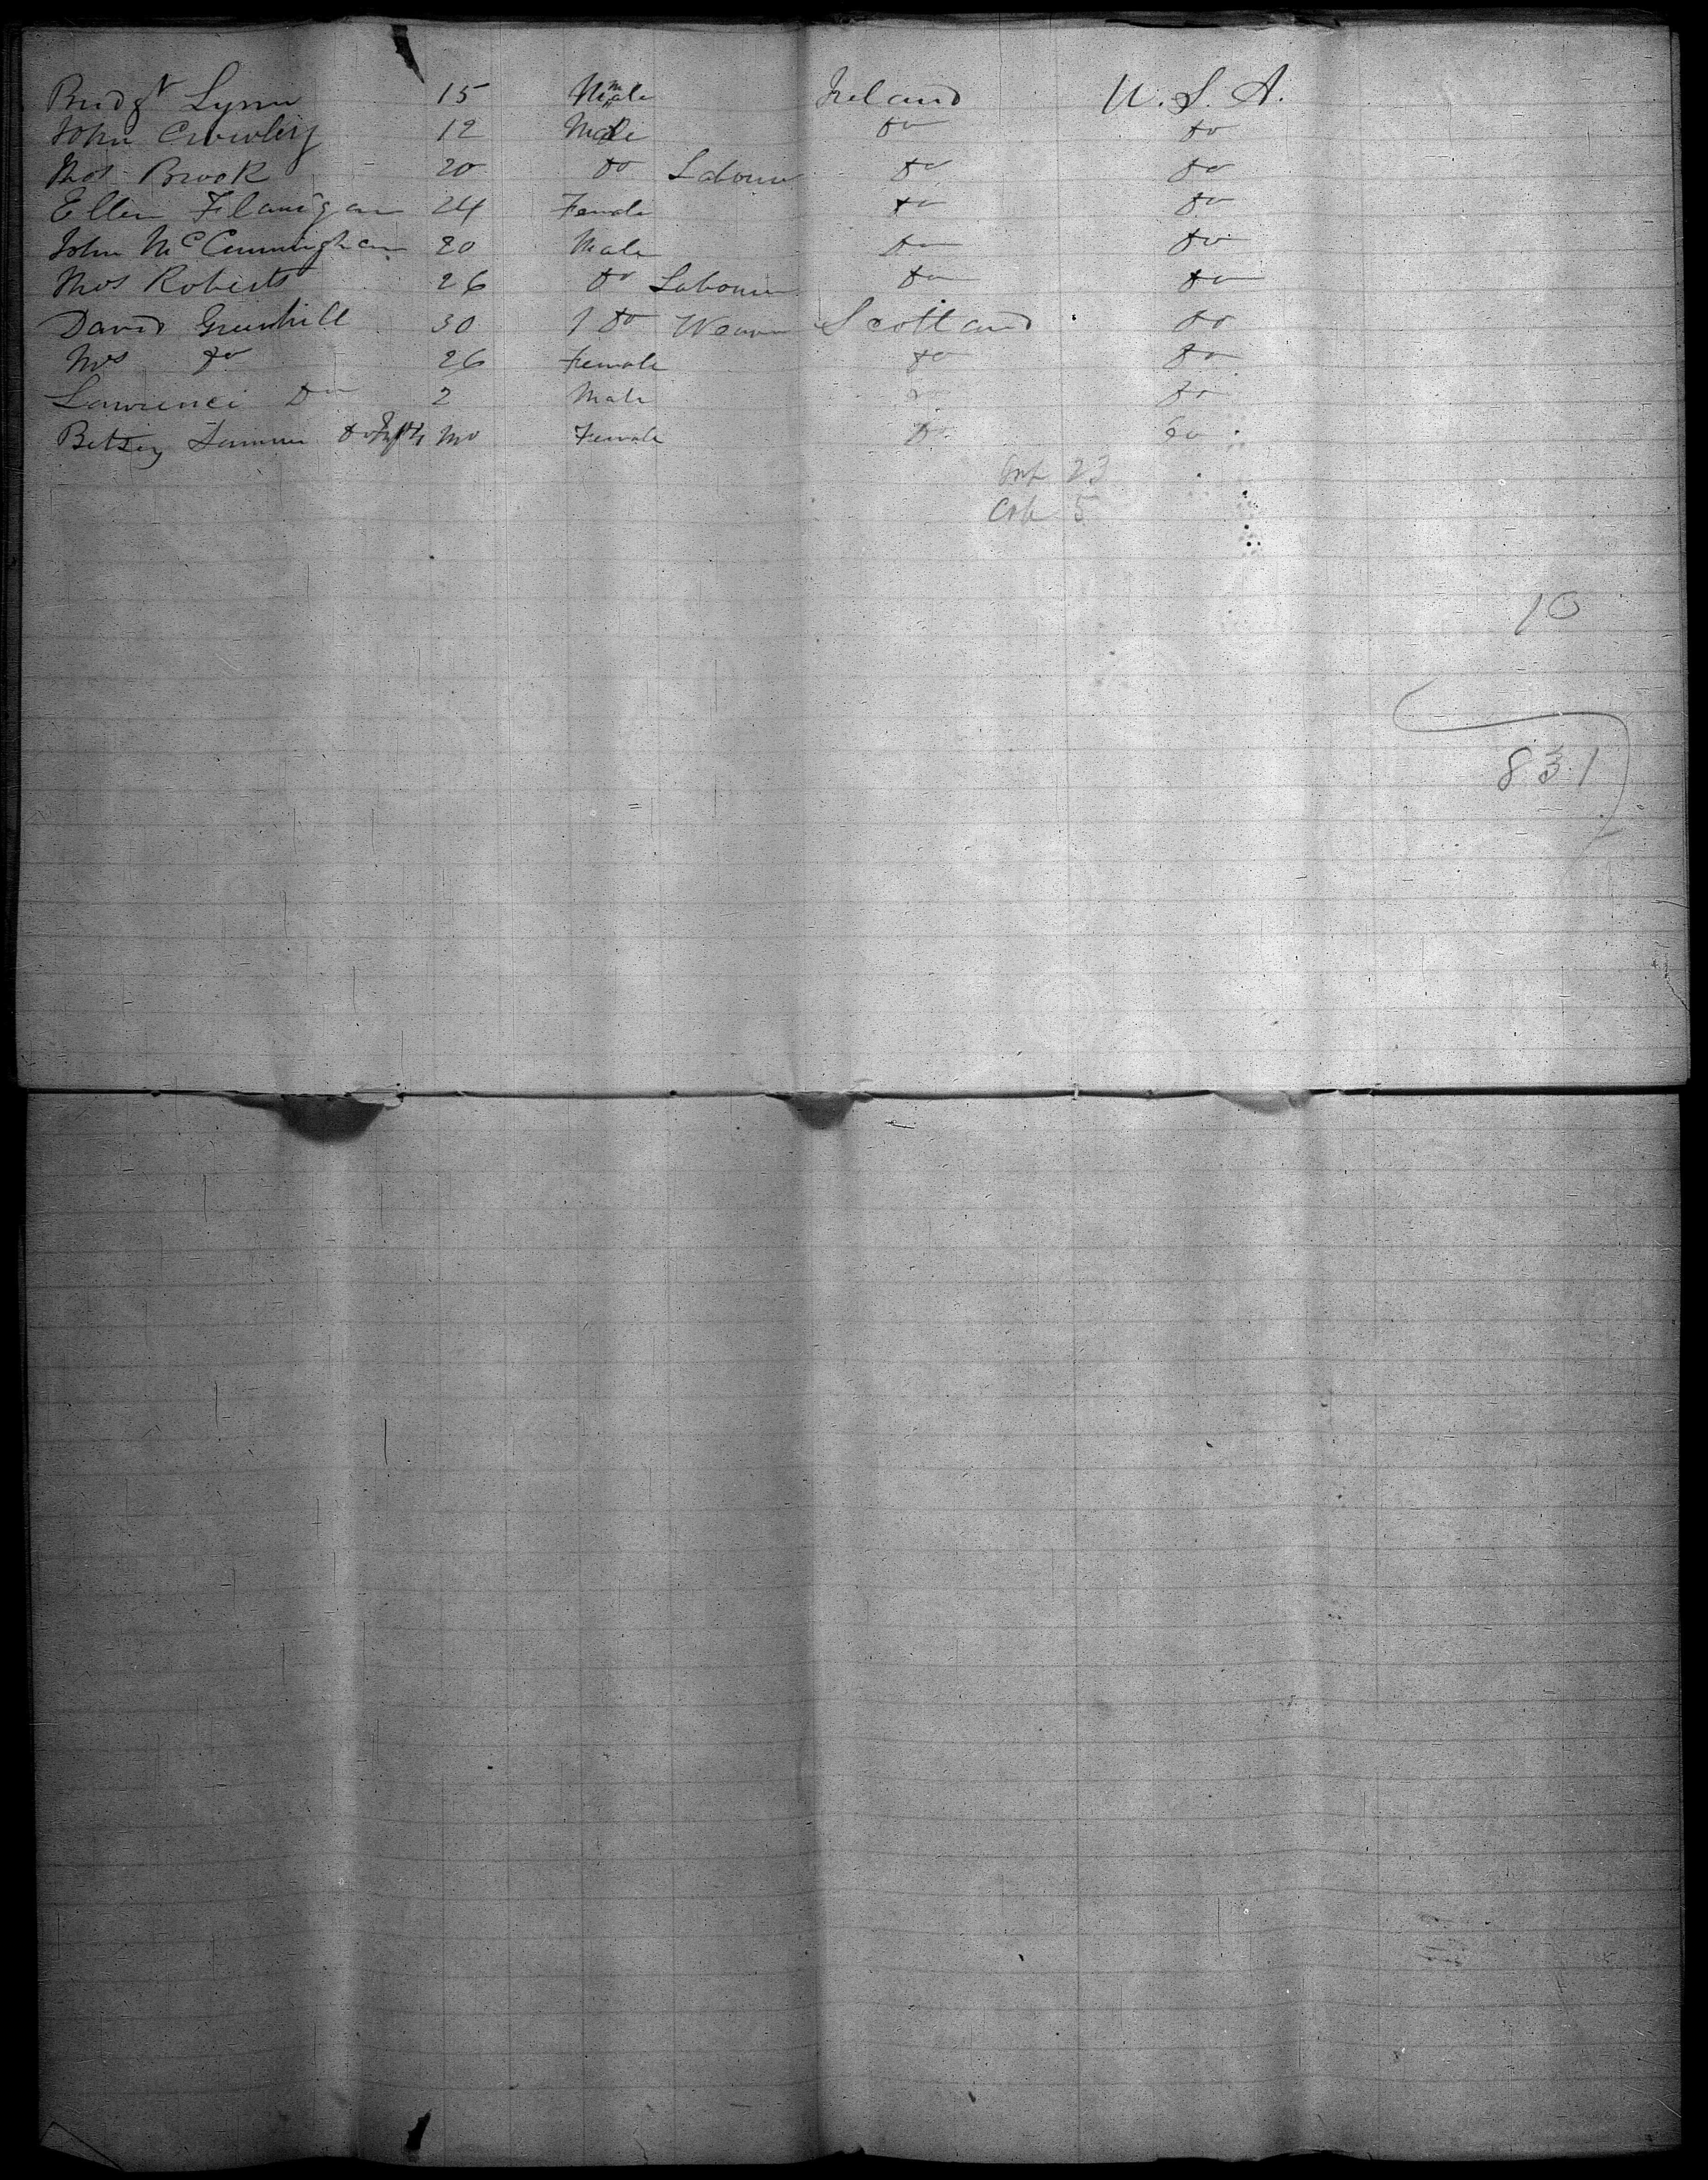 Bridgt Lynn 15 Male Ireland U. S. A.
John Crowley 12 Male do do
Thos Brook 20 do Labourer do do
Ellen Flanigan 24 Female do do
John McCunningham 20 Male do do
Thos Roberts 26 do Labourer do do
David Greenhill 30 1 do Weaver Scotland do
Mrs do 26 Female do do
Lawrence Do 2 Male do do
Betsey do Inft Mo Female do do
Inf 23
5
10
831